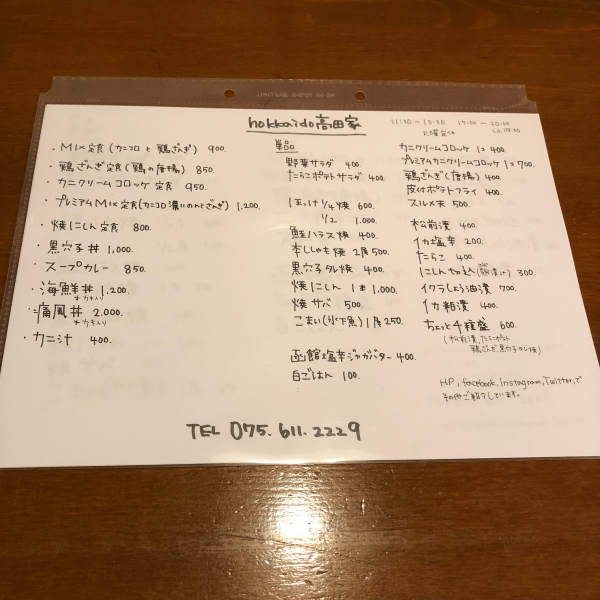 hokkaido高田家
11:30 ~ 13:30 17:00 ~ 20:00
火曜定休 L.O. 19:30
・MIX定食(カニコロと鶏ざんぎ) 900.
・鶏ざんぎ定食(鶏の唐揚) 850.
・カニクリームコロッケ定食 950.
・プレミアムMIX定食(カニコロ濃いのんとざんぎ) 1.200
・焼にしん定食 800
・黒穴子丼 1.000
・スープカレー 850.
・海鮮丼 1.200
*カキ入り
・痛風丼 2.000
*カキ入り
・カニ汁 400.
単品
野菜サラダ 400.
たらこポテトサラダ 400.
ほっけ 1/4焼 600
1/2 1.000
鮭ハラス焼 400
本ししゃも焼 2尾 500
黒穴子タレ焼 400
焼にしん 1本 1.000
焼サバ 500
こまい(氷下魚) 1尾 250.
函館塩辛ジャガバター 400.
白ごはん 100.
カニクリームコロッケ 1コ 400.
プレミアムカニクリームコロッケ 1コ 700.
鶏ざんぎ(唐揚) 400.
皮付ポテトフライ 400.
スルメ天 500
松前漬 400.
イカ塩辛 200.
たらこ 400.
にしん切込(麹漬け) 300
イクラしょう油漬 700.
イカ粕漬 400
ちょっと千種盛 600.
HP, facebook, Instagram, Twitter, で
その他ご紹介しています。
TEL 075.611.2229